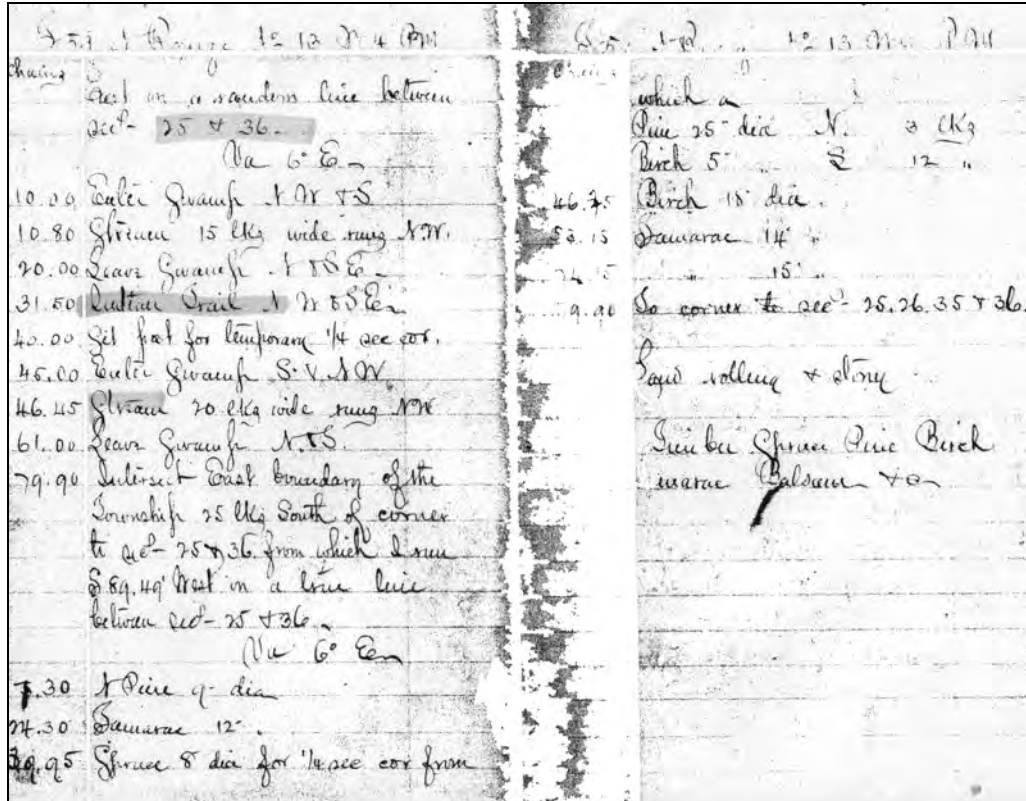 Chains
East on a random line between
secs 25 & 36.
Va 6° E
10.00 Enter Swamp N W & S
10.80 Stream 15 lks wide runs N.W.
20.00 Leave Swamp N & S E
31.50 Indian Trail N W & S E
40.00 Set post for temporary 1/4 sec cor.
45.00 Enter Swamp S. & N.W.
46.45 Stream 20 lks wide runs NW
61.00 Leave Swamp N. & S.
79.90 Intersect East boundary of the
Township 25 lks South of corner
to secs 25 & 36 from which I run
S 89.49' West on a true line
between secs 25 & 36
Va 6° E
.30 A Pine 9" dia
24.30 Tamarac 12"
39.95 Spruce 8 dia for 1/4 sec cor from
which a
Pine 25" dia N. 3 lks
Birch 5" " S 12 "
46.75 Birch 15" dia.
53.15 Tamarac 14" "
15"
9.90 To corner to secs 25, 26, 35 & 36
Land rolling & stony
Timber Spruce Pine Birch
marac Balsam &c